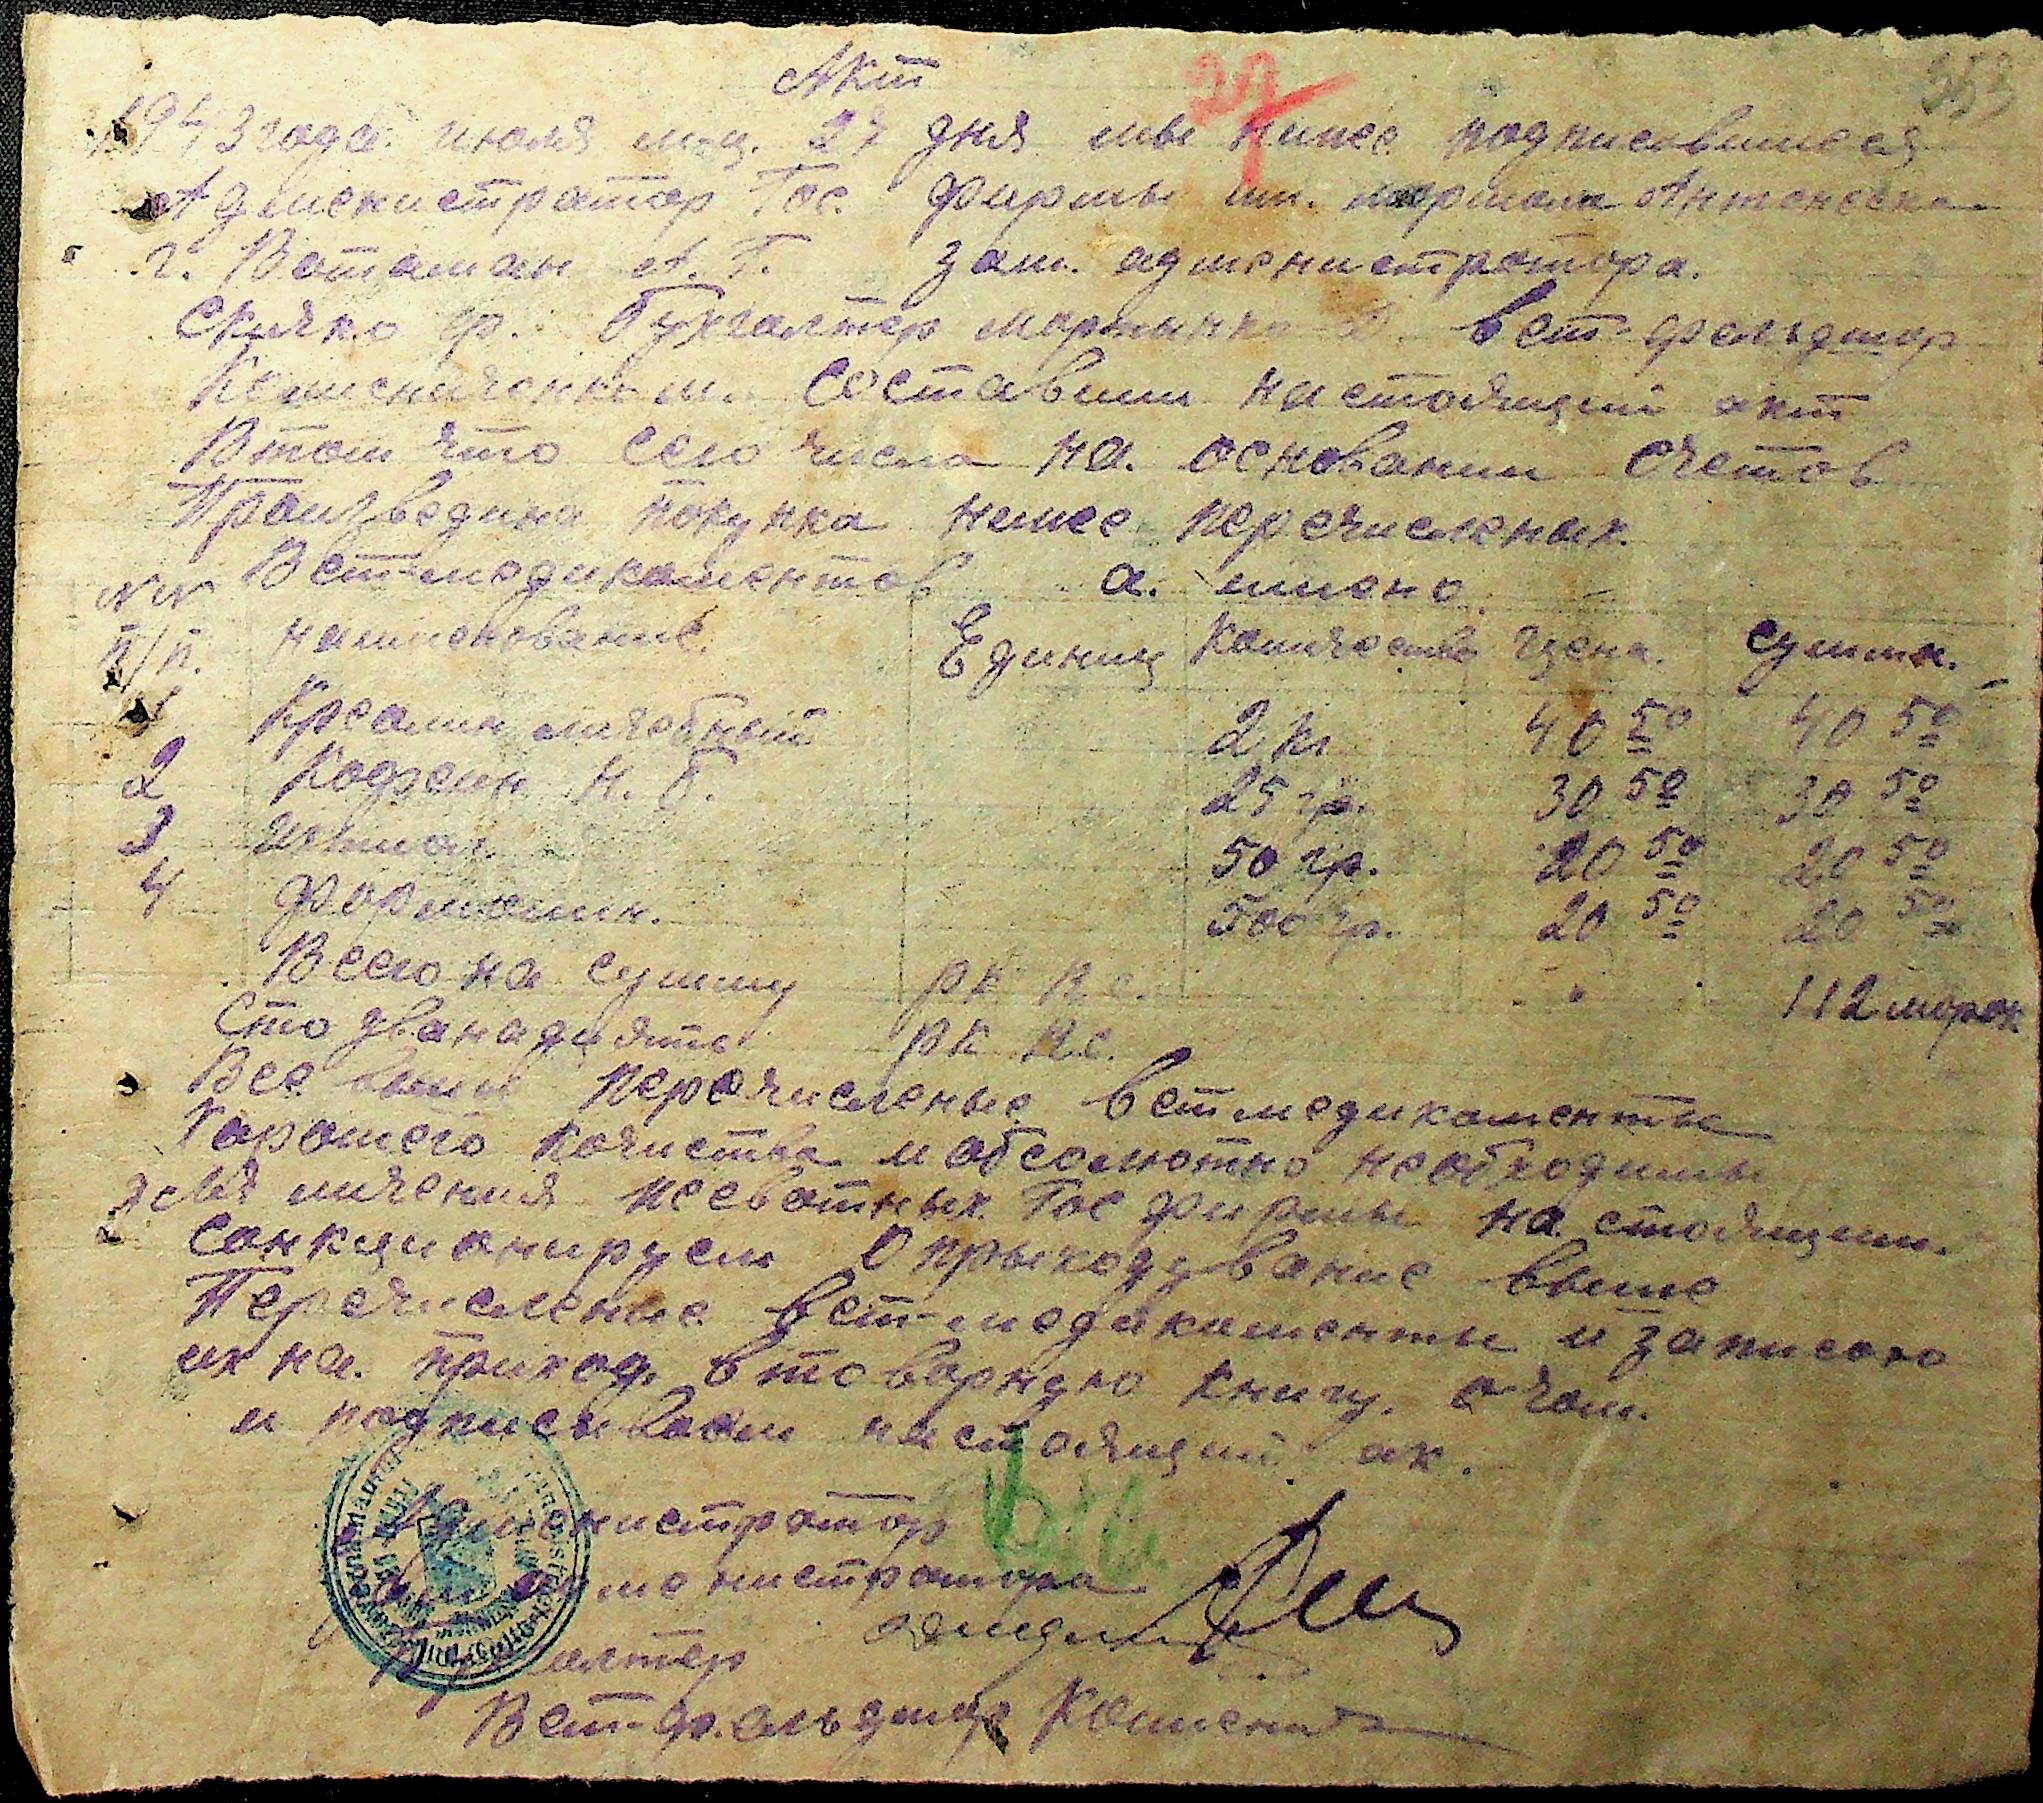 Акт
27
353
1943 года июля м-ц. 27 дня мы ниже подписавшиеся
Администратор Гос. фирмы им. маршала Антонеска
г. Ватаман А. Г. зам. администратора.
Скичко ф. бухгалтер Мартынко вет-фельдшер
составили настоящий акт
Втом что сего числа на. основании счетов
Произведина покупка неже перечисленых.
Вет-медикаментов а. имено.
№№ п/п. наименование. Единиц Количество Цена. сумма.
1 Креолин личебный 2 кг 40 50 40 50
2 Кофеин Н. Б. 25 гр. 30 50 30 50
3 50 гр. 20 50 20 50
4 формалин. 500 гр. 20 50 20 50
Всего на сумму РК КС. 112 марок
Сто дванадцять РК КС.
Все выше перечисленые ветмедикаменты
Харошего качиства и абсолютно необходимы
для личения Гос фирмы на стоящим.
санкционируем Оприходувание выше
Перечисленые вет-медикаменты и записано
их на. приход. втоварную книгу. о чом.
и подписываем настоящий ак.
Администратор
Зам администратора
Бухгалтер
Вет-фельдшер